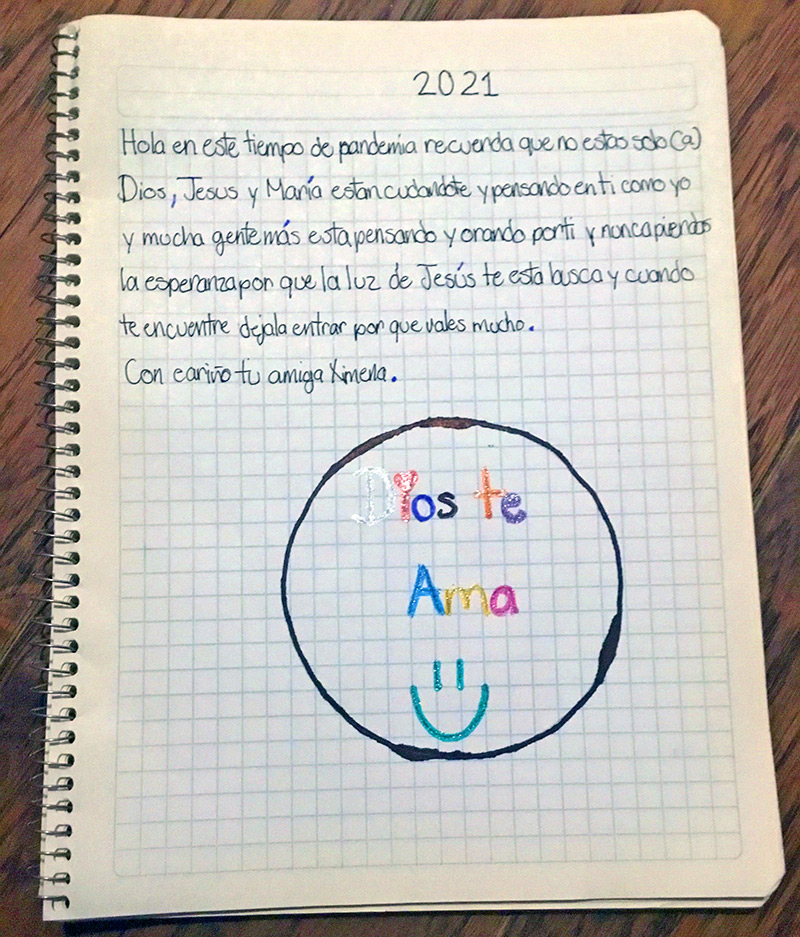 2021
Hola en este tiempo de pandemia recuerda que no estas solo(a)
Dios, Jesus y María estan cudandote y pensando en ti como yo
y mucha gente más esta pensando y orando por ti y nunca pierdas
la esperanza por que la luz de Jesús te esta busca y cuando
te encuentre dejala entrar por que vales mucho.
Con cariño tu amiga Ximena.
Dios te
Ama